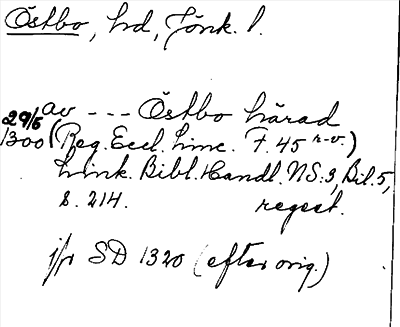 Östbo, hd, Jönk. l.
av --- Östbo härad
29/5 1300 (Reg. Eccl. Linc. F. 45 r-v.)
Link. Bibl. Handl. NS:3, Bil. 5,
s. 214. regest.
jfr SD 1320 (efter orig.)